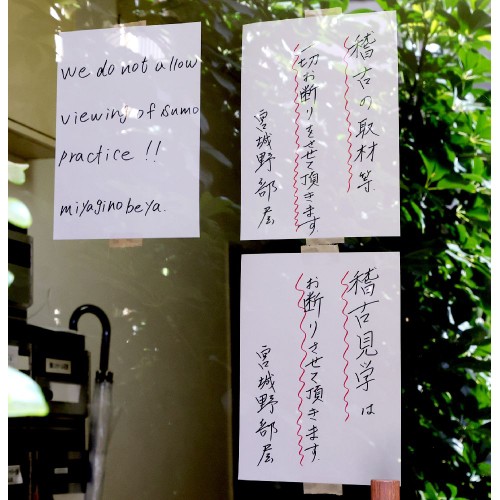 we do not allow
viewing of sumo
practice !!
miyagino beya.
稽古の取材等
一切お断りをさせて頂きます
宮城野部屋
稽古見学は
お断りさせて頂きます
宮城野部屋